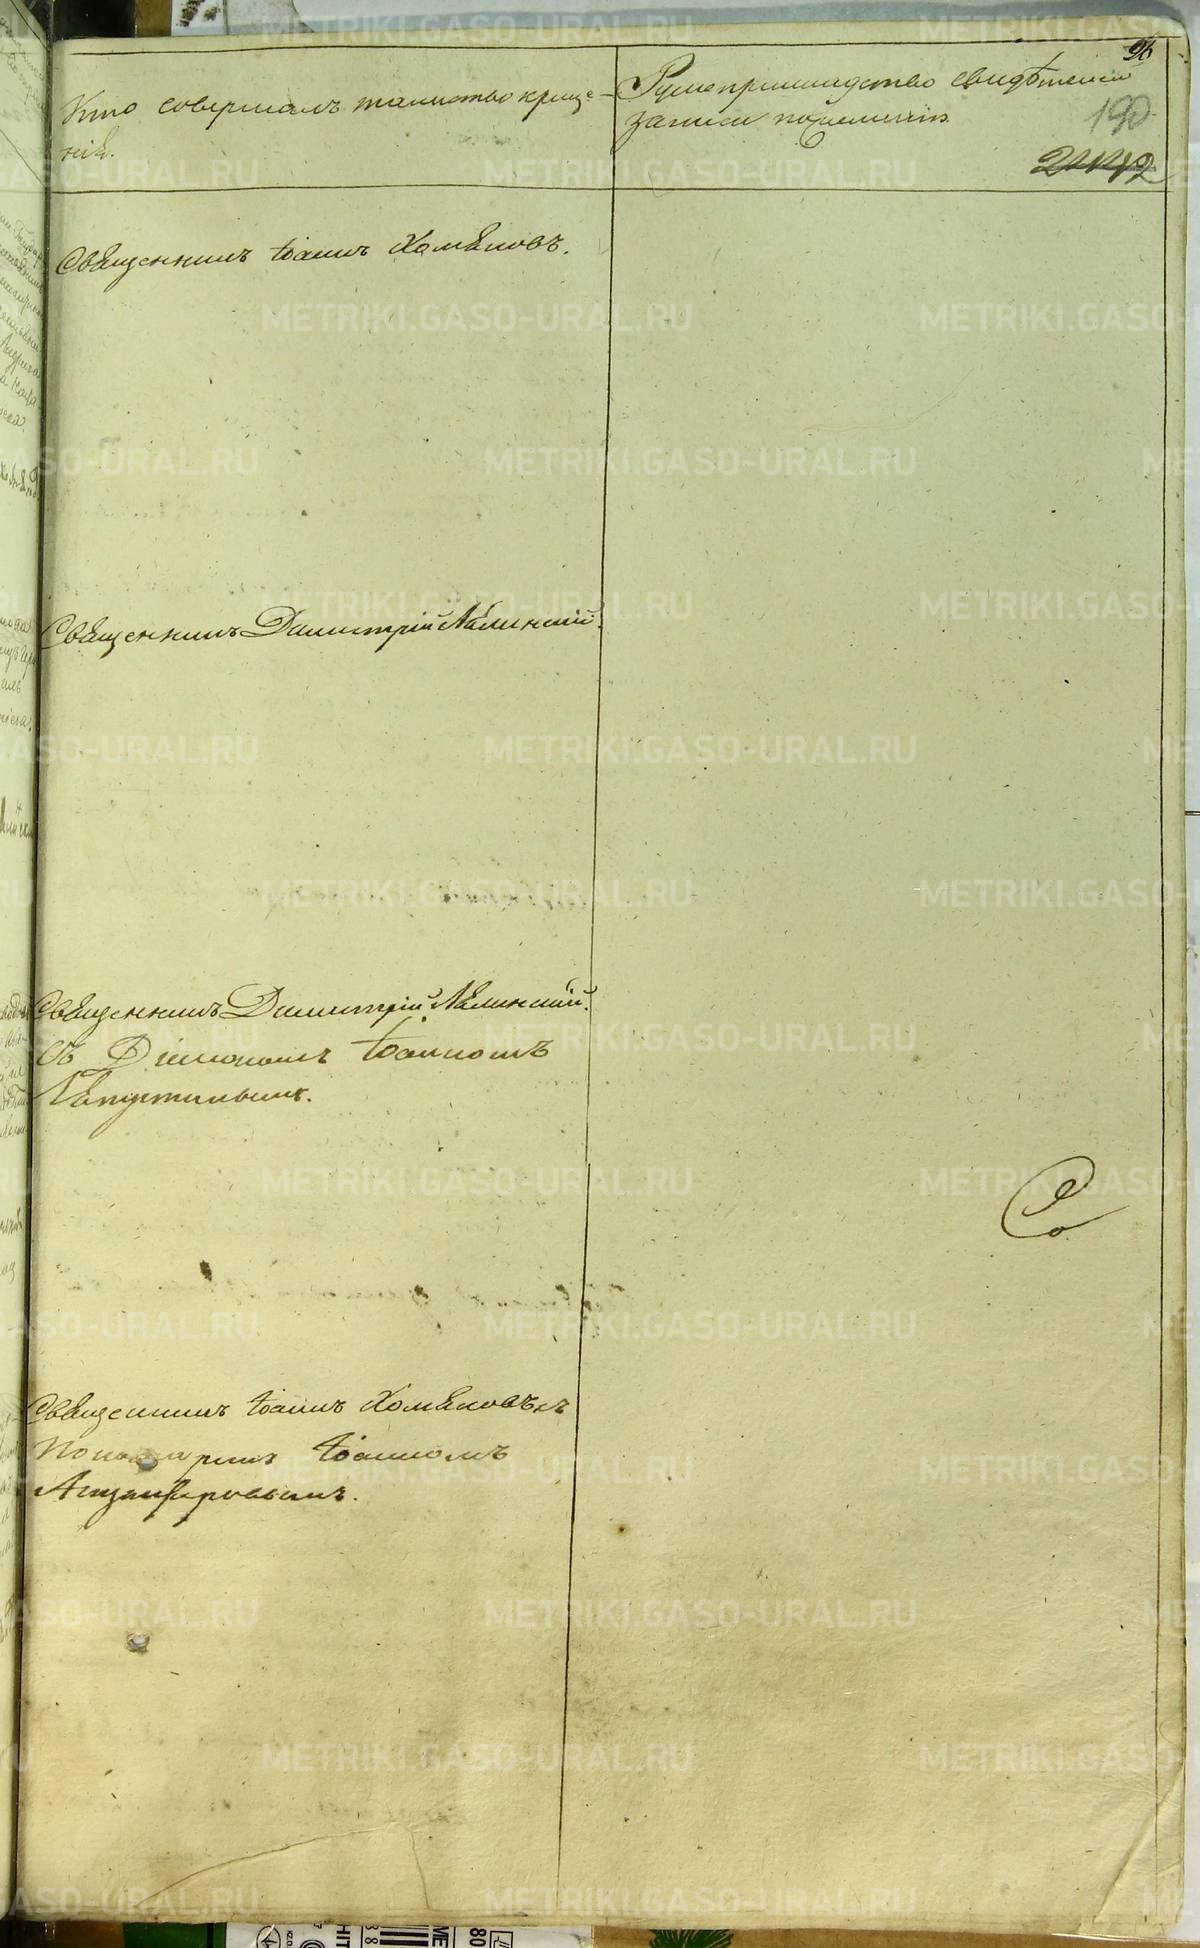 26
Кто совершалъ таинство креще-
нія.
Рукоприкладство свидѣтелей
записи по желанію
190
Священникъ Іоаннъ Хомяковъ.
Священникъ Димитрій Ляпинскій.
Священникъ Димитрій Ляпинскій.
Съ Діакономъ Іоанномъ
Капустинымъ.
Со
Священникъ Іоаннъ Хомяковъ съ
Пономаремъ Іоанномъ
METRIKI.GASO-URAL.RU